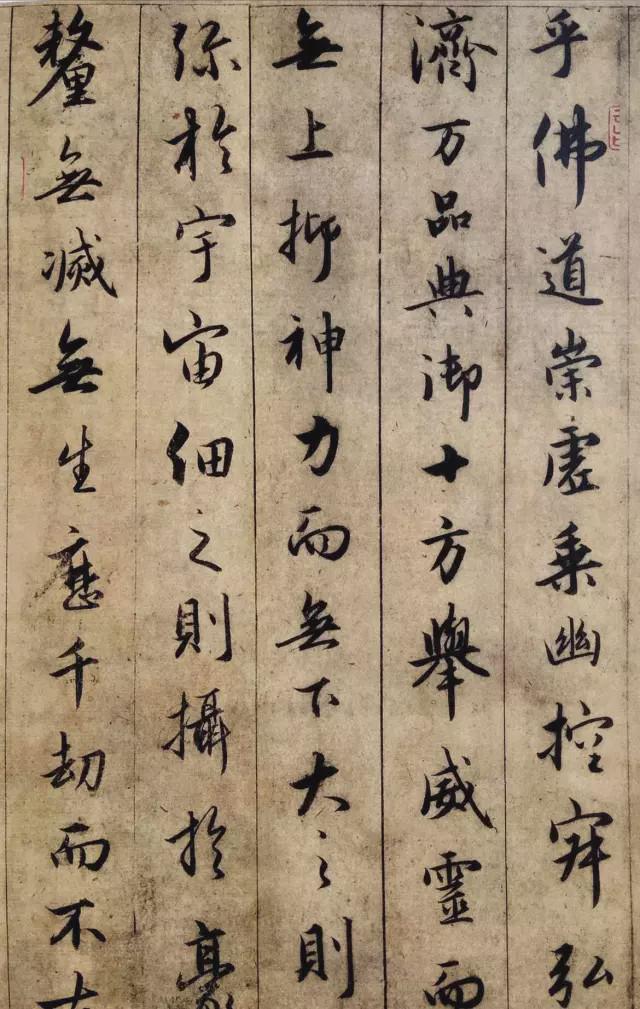 乎佛道崇虛乘幽控寂弘
濟万品典御十方舉威靈而
無上抑神力而無下大之則
弥於宇宙細之則攝於毫
釐無滅無生歷千劫而不古